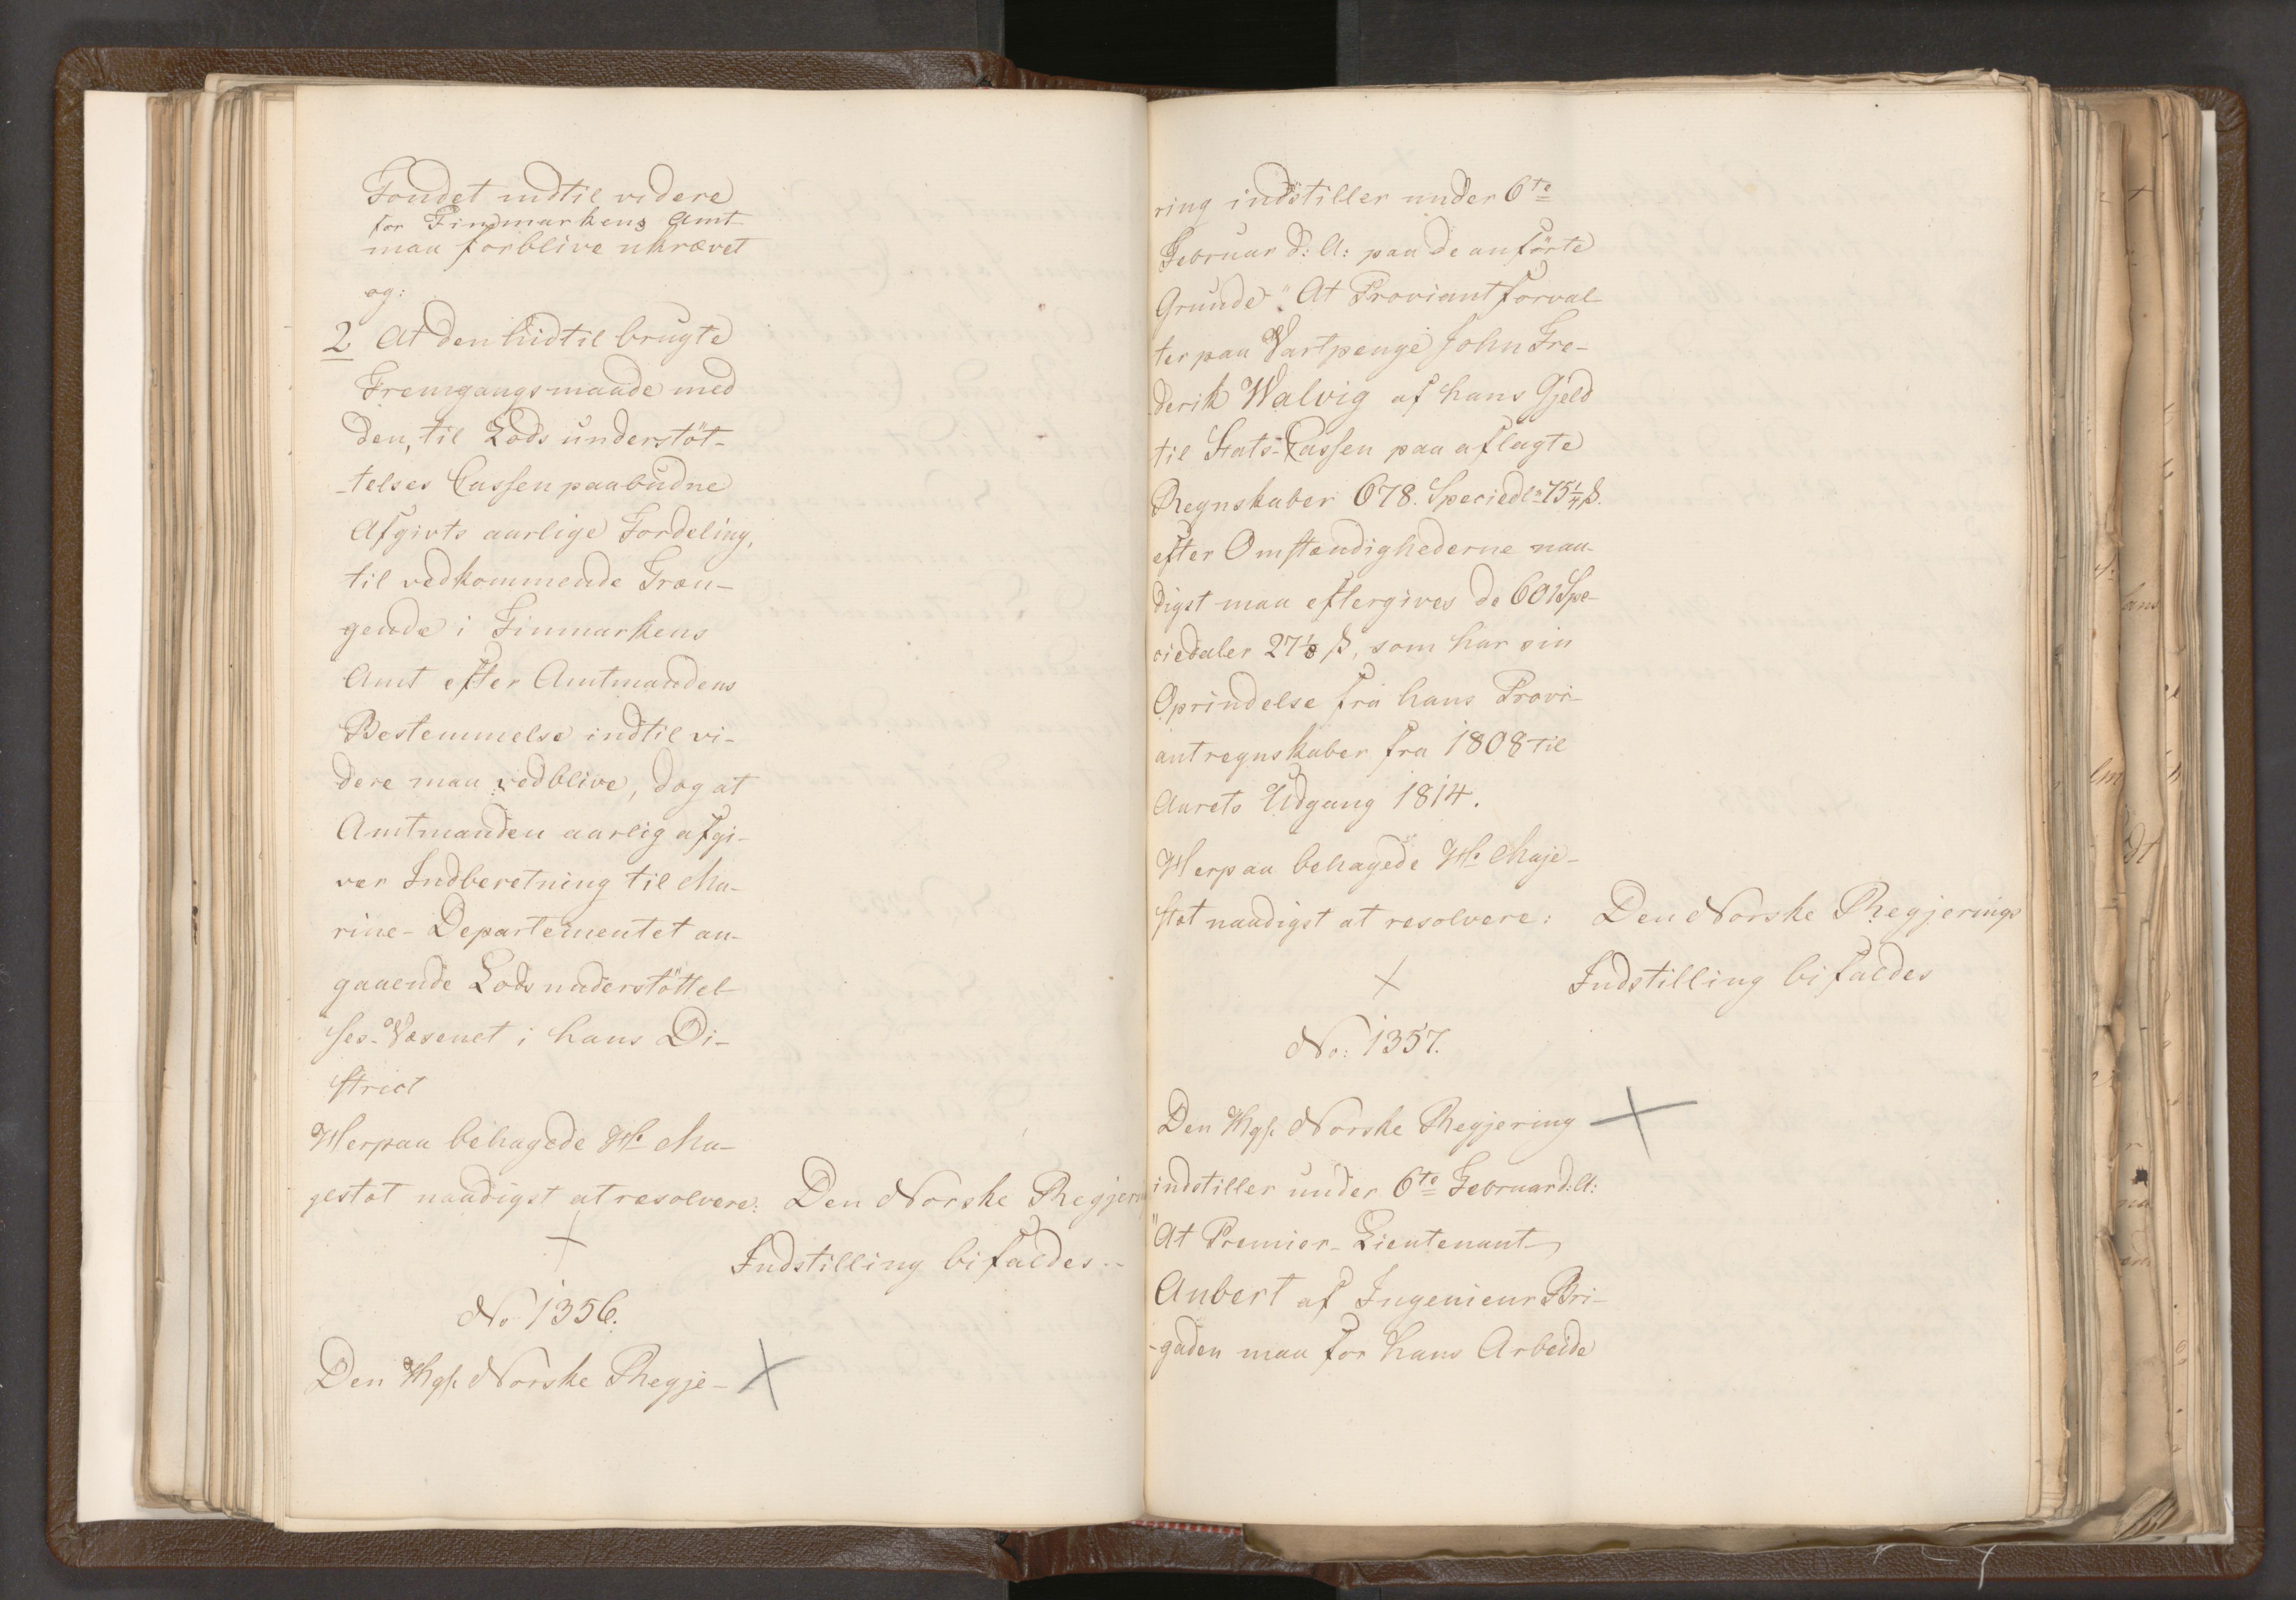 Fondet indtil videre
for Findmarkens Amt
maa forblive ukrævet
og:
2 At den hidtil brugte
Fremgangsmaade med
den, til Lods understöt-
-telses Cassen paabudne
Afgivts aarlige Fordeling,
til vedkommende Træn-
gende i Finmarkens
Amt efter Amtmandens
Bestemmelse indtil vi-
dere maa vedblive, dog at
Amtmanden aarlig afgi-
ver Indberetning til Ma-
rine-Departementet an-
gaaende Lodsunderstöttel-
ses-Væsenet i hans Di-
strict
Herpaa behagede Hs Ma-
jestæt naadigst at resolvere: Den Norske Regjer
Indstilling bifaldes.-
No 1356.
Den Kgl. Norske Regje-
ring indstiller under 6te
Februar d: A: paa de anförte
Grunde: "At Proviantforval-
ter paa Vartpenge John Fre-
derik Walvig af hans Gjeld
til Stats-Cassen paa aflagte
Regnskaber 678. Speciedlr 75 1/4 ß.
efter Omstændighederne naa-
digst maa eftergives de 601 Spe-
ciedaler 27 1/8 ß, som har sin
Oprindelse fra hans Provi-
antregnskaber fra 1808 til
Aarets Udgang 1814.
Herpaa behagede Hs Maje-
stæt naadigst at resolvere: Den Norske Regjerings
Indstilling bifaldes
No: 1357.
Den Kgl. Norske Regjering
indstiller under 6te Februar d: A:
"At Premier-Lieutenant
Aubert af Ingenieur Bri-
-gaden maa for hans Arbeide